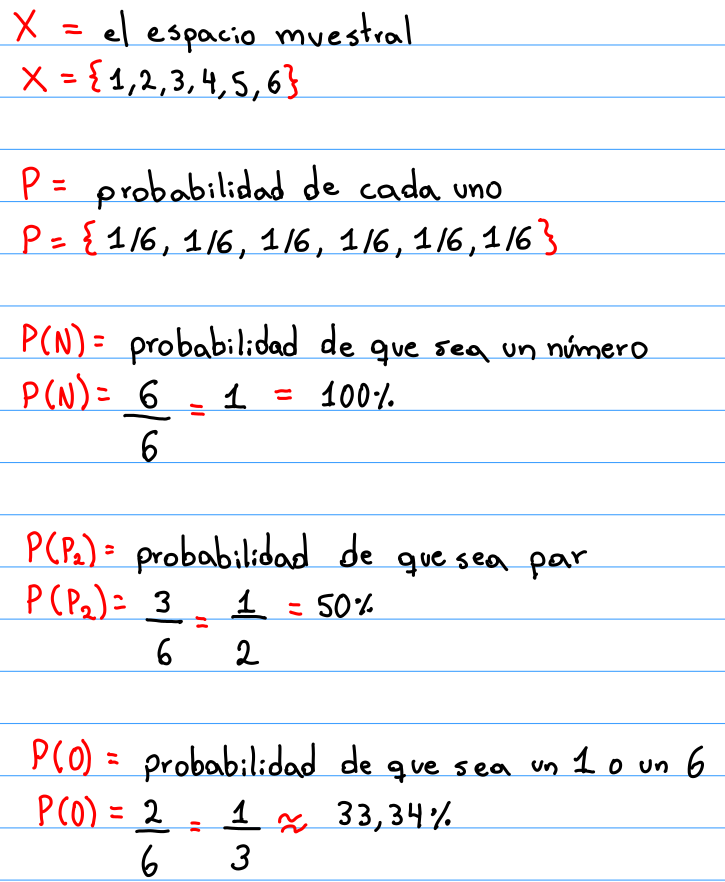 X = el espacio muestral
X = {1,2,3,4,5,6}
P = probabilidad de cada uno
P = {1/6, 1/6, 1/6, 1/6, 1/6, 1/6}
P(N) = probabilidad de que sea un número
P(N) = 6/6 = 1 = 100%
P(P₂) = probabilidad de que sea par
P(P₂) = 3/6 = 1/2 = 50%
P(O) = probabilidad de que sea un 1 o un 6
P(O) = 2/6 = 1/3 ≈ 33,34%